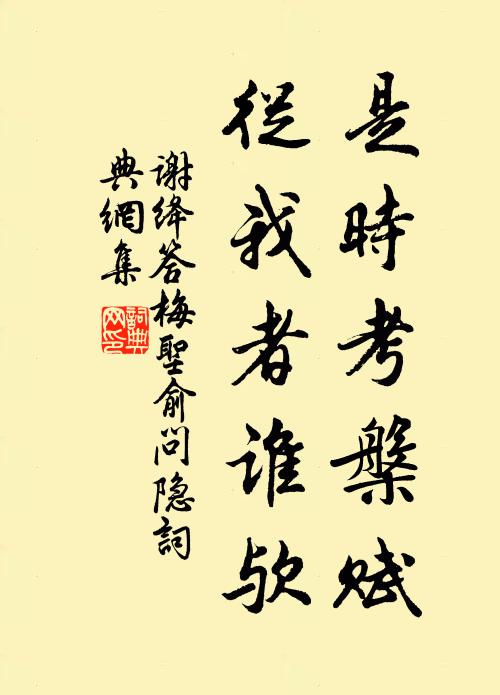 是時考槃赋
從我者谁欤
谢绛答梅聖俞问隐詞
典網集
詞典网印